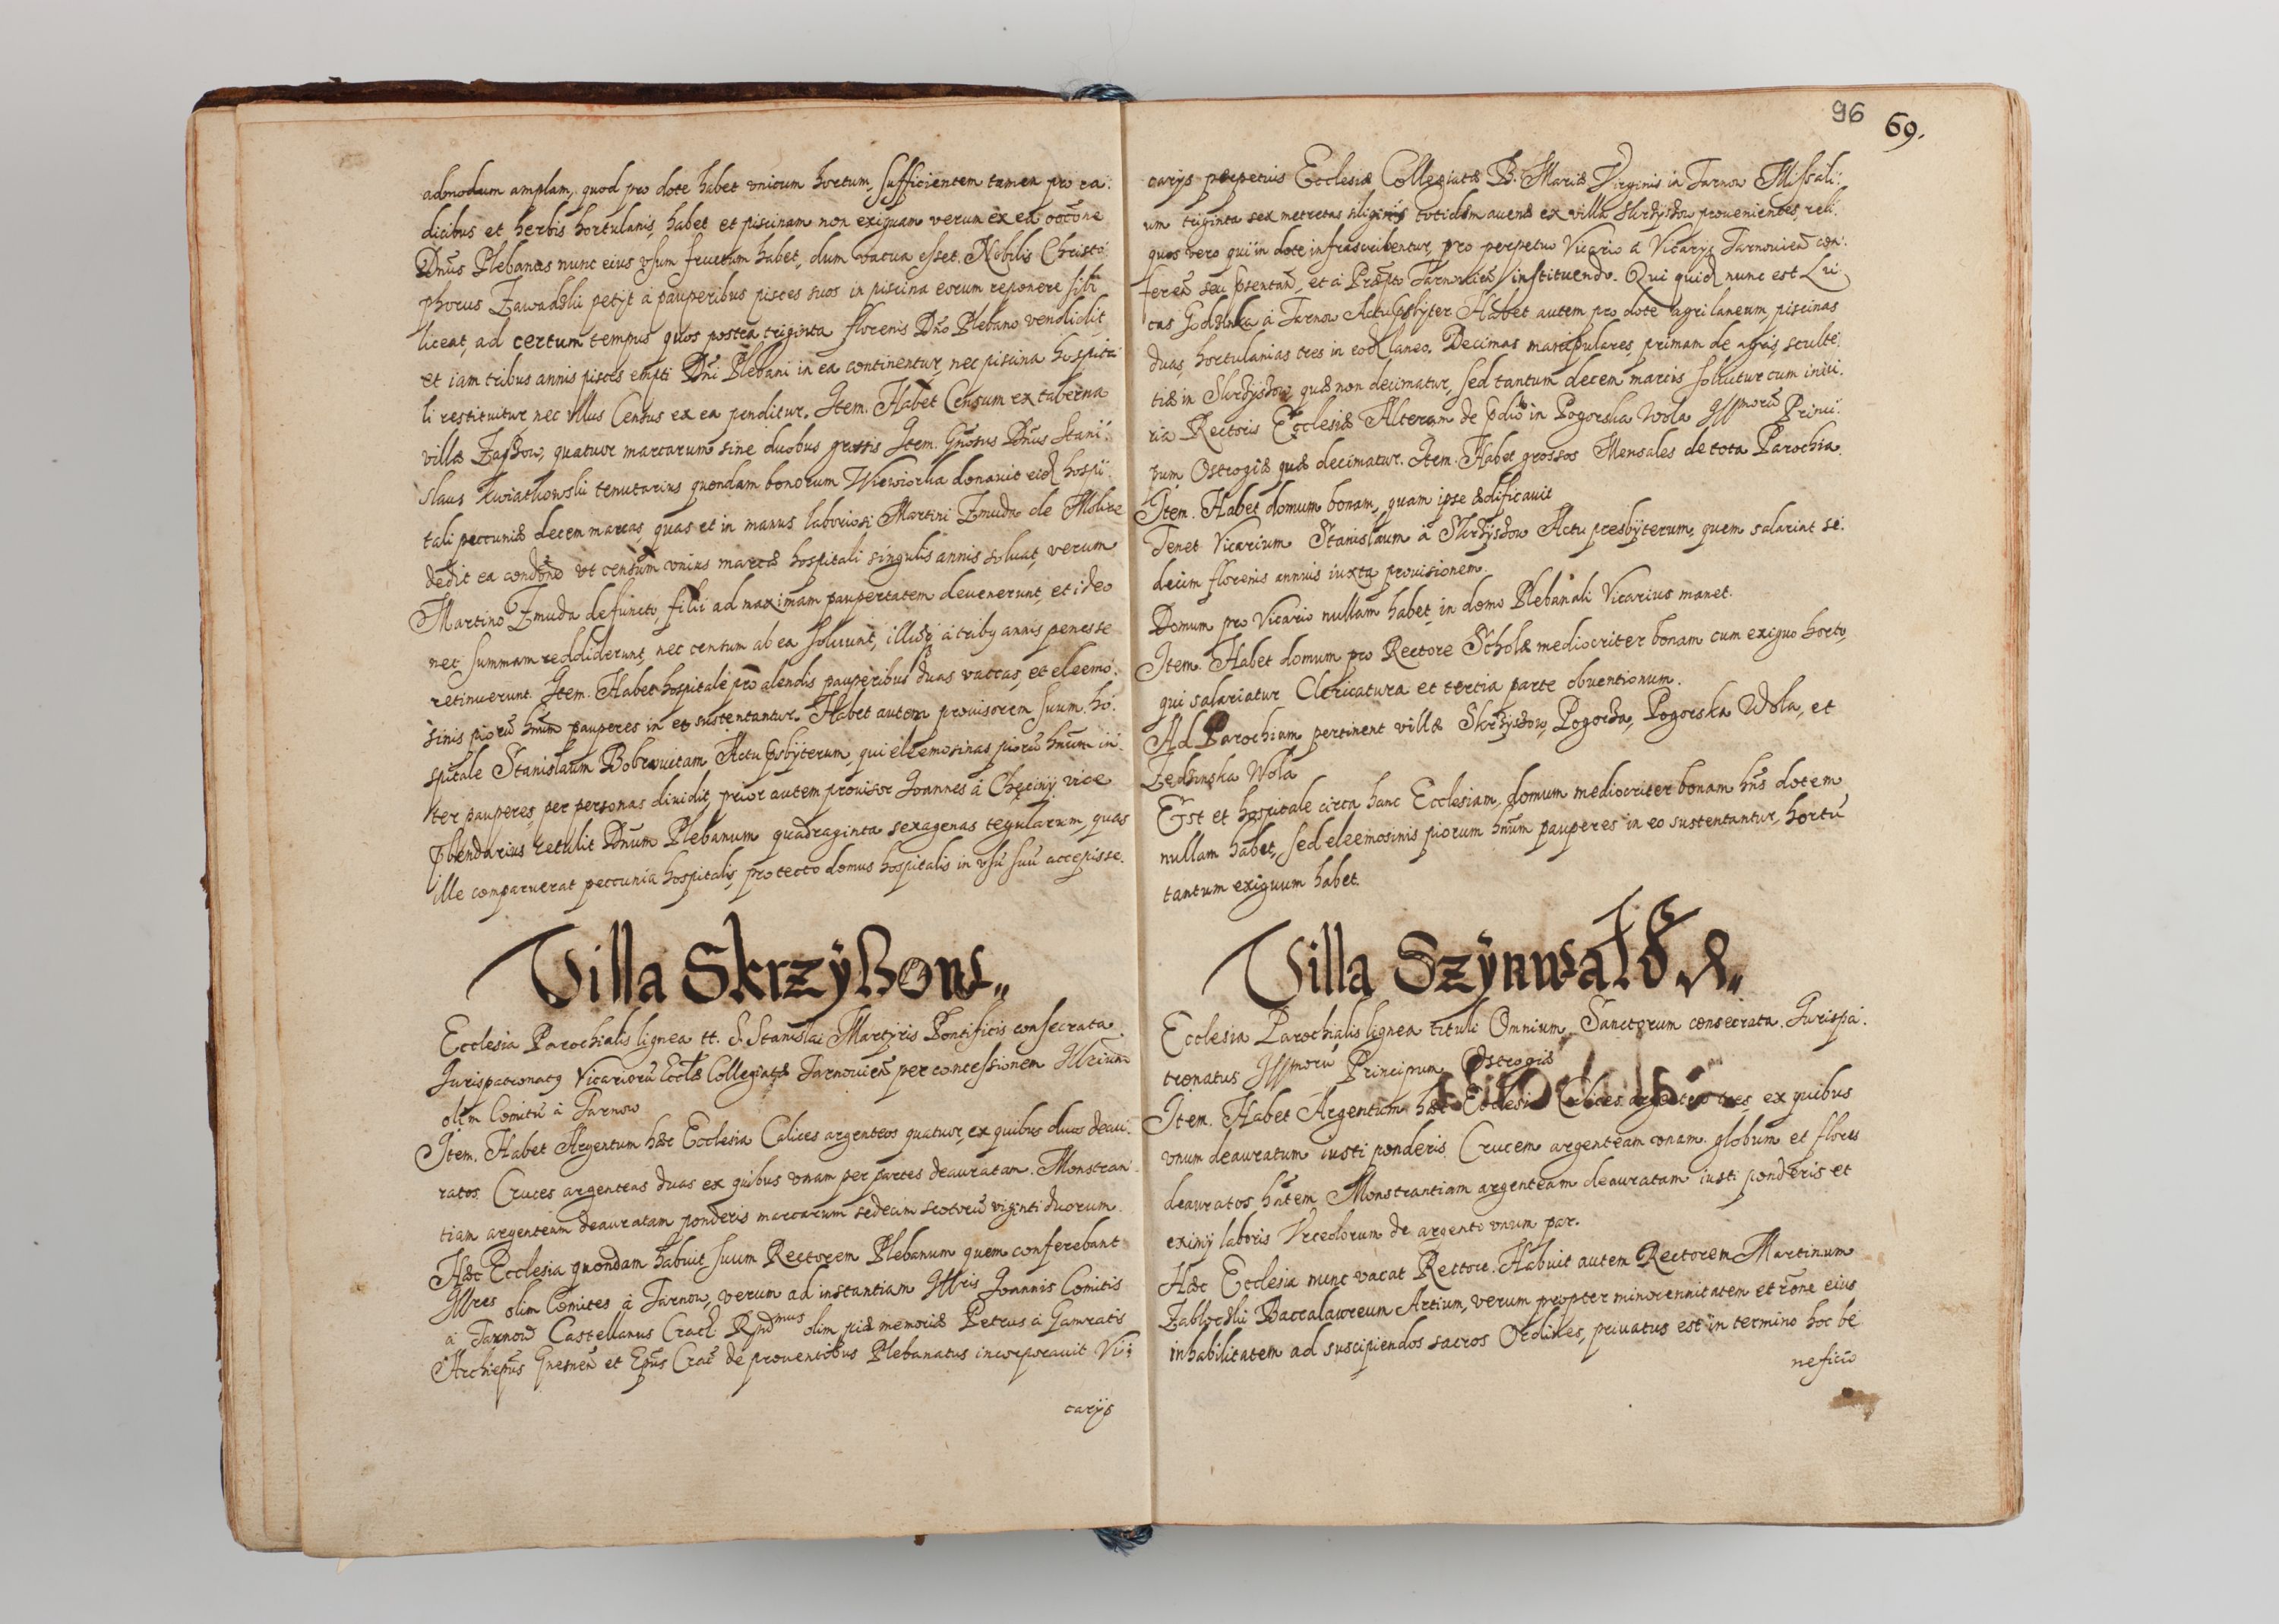 admodum amplam, quod pro dote habet vnicum hortum, sufficientem tamen pro ra:
dicibus et herbis hortulanis, habet et piscinam non exiguam verum ex ea occōne
Dnūs Plebanus nunc eius vsum fructum habet, dum vacua esset. Nobilis Christo:
phorus Zawadzki petyt á pauperibus pisces suos in piscina eorum reponere sibi
liceat, ad certum tempus quos postea triginta florenis Dnō Plebano vendidit
et iam tribus annis pisces empti Dni Plebani in ea continentur, nec piscina hospita
li restituitur, nec vllus Census ex ea penditur. Item. Habet Censum ex taberna
villæ Zaszow, quatuor marcarum sine duobus grossis Item. Gnōsus Dnūs Stani:
slaus Kwiatkowski tenutarius quondam bonorum Wiewiorka donauit eid hospi:
tali peccuniæ decem marcas, quas et in manus laboriosi Martini Zmuda de
dedit ea condōne vt censum vnius marcæ hospitali singulis annis soluat, verum
Martino Zmuda defuncto, filii ad maximam paupertatem deuenerunt, et ideo
nec summam reddiderunt, nec censum ab ea soluunt, illudq á tribq annis penes se
retinuerunt. Item. Habet hospitale pro alendis pauperibus duas vaccas, et eleemo:
sinis piorū hnūm pauperes in eo sustentantur. Habet autem prouisorem suum ho:
spitale Stanislaum Actu psbÿterum, qui eleemosinas piorū hnūm in:
ter pauperes, per personas diuidit, prior autem prouisor Joannes á Chęciny vice
pbendarius retulit Dnūm Plebanum quadraginta sexagenas tegularum, quas
ille comparuerat peccunia hospitalis, pro tecto domus hospitalis in vsū suū accepisse.
Villa Skrzÿszow
Ecclesia Parochialis lignea tt. S. Stanislai Martÿris Pontificis consecrata.
Jurispatronatq Vicariorū Eccłæ Collegiatæ Tarnouien̄ per concessionem Illrium
olim Comitū á Tarnow
Item. Habet Argentum hæc Ecclesia Calices argenteos quatuor, ex quibus duos deau:
ratos. Cruces argenteas duas ex quibus vnam per partes deauratam. Monstran:
tiam argenteam deauratam ponderis marcarum sedecim scotorū viginti duorum.
Hæc Ecclesia quondam habuit suum Rectorem Plebanum quem conferebant
Illres olim Comites á Tarnow, verum ad instantiam Illris Joannis Comitis
á Tarnow Castellanus Crac̄ Rndmus olim piæ memoriæ Petrus á Gamratis
Archiepūs Gnesnen̄ et Epūs Crac̄ de prouentibus Plebanatus incorporauit Vi:
carÿs
96
69.
carÿs perpetuis Ecclesiæ Collegiatæ B. Mariæ Virginis in Tarnow Missali:
um triginta sex metretas siliginis totidem auenæ ex villa Skrzÿszow prouenientes, reli:
quos vero qui in dote infrascribentur, pro perpetuo Vicario a Vicarÿs Tarnouien̄ con:
feren̄ seu psentan̄, et á Præpto Tarnouien̄ instituendo. Qui quid nunc est Lu:
cas á Tarnow Actu psbÿter Habet autem pro dote agri laneum, piscinas
duas, hortulanias tres in eod laneo. Decimas manipulares, primam de agris, sculte:
tiæ in Skrzÿszow quæ non decimatur, sed tantum decem marcis soluitur cum iniu:
ria Rectoris Ecclesiæ Alteram de pdio in Pogorska Wola Illmorū Princi:
pum Ostrogiæ quæ decimatur. Item. Habet grossos Mensales de tota Parochia.
Item. Habet domum bonam, quam ipse ædificauit
Tenet Vicarium Stanislaum á Skrzÿszow Actu presbÿterum, quem salariat se:
decim florenis annuis iuxta prouisionem.
Domum pro Vicario nullam habet, in domo Plebanali Vicarius manet.
Item. Habet domum pro Rectore Scholæ mediocriter bonam cum exiguo horto,
qui salariatur Clericatura et tertia parte obuentionum.
Ad Parochiam pertinent villæ Skrzÿszow, Pogorza, Pogorska Wola, et
Ledzinska Wola
Est et hospitale circa hanc Ecclesiam, domum mediocriter bonam hn̄s dotem
nullam habet, sed eleemosinis piorum hnūm pauperes in eo sustentantur, hortū
tantum exiguum habet.
Villa Szÿnwałd
Ecclesia Parochialis lignea tituli Omnium Sanctorum consecrata. Jurispa:
tronatus Illmorū Principum Ostrogiæ
Item. Habet Argentum hæc Ecclesia Calices argenteos tres, ex quibus
vnum deauratum iusti ponderis. Crucem argenteam vnam. globum et flores
deauratos hn̄tem Monstrantiam argenteam deauratam iusti ponderis et
eximÿ laboris Vrceolorum de argento vnum par.
Hæc Ecclesia nunc vacat Rectore. Habuit autem Rectorem Martinum
Zabloczki Baccalaureum Artium, verum propter minorennitatem et rōne eius
inhabilitatem ad suscipiendos sacros Ordines, priuatus est in termino hoc be
neficio